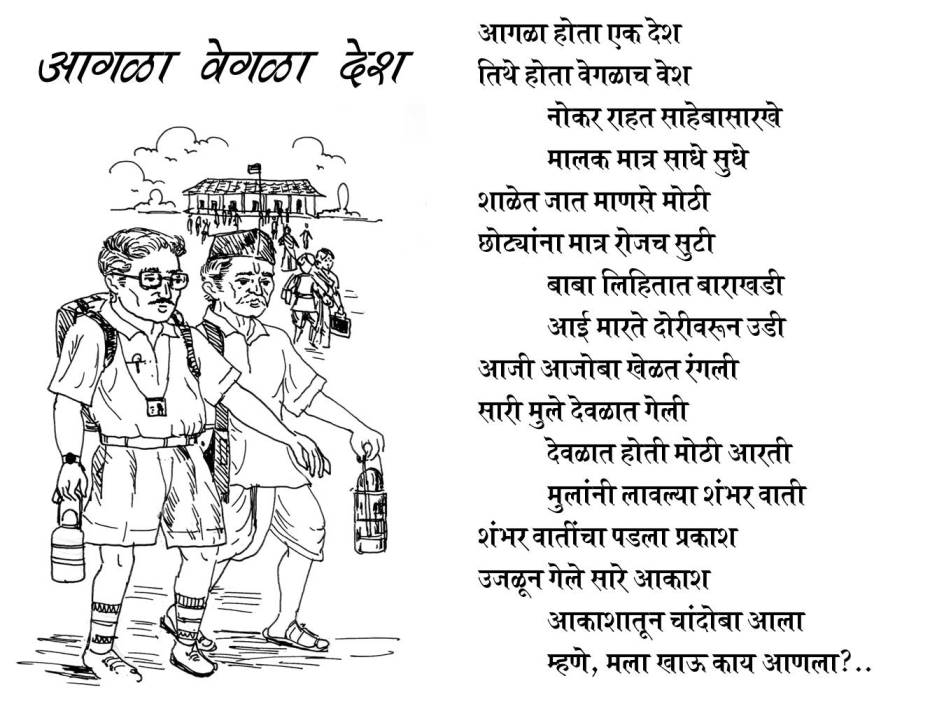 आगळा वेगळा देश
आगळा होता एक देश
तिथे होता वेगळाच वेश
नोकर राहत साहेबासारखे
मालक मात्र साधे सुधे
शाळेत जात माणसे मोठी
छोट्यांना मात्र रोजच सुटी
बाबा लिहितात बाराखडी
आई मारते दोरीवरून उडी
आजी आजोबा खेळत रंगली
सारी मुले देवळात गेली
देवळात होती मोठी आरती
मुलांनी लावल्या शंभर वाती
शंभर वातींचा पडला प्रकाश
उजळून गेले सारे आकाश
आकाशातून चांदोबा आला
म्हणे, मला खाऊ काय आणला?..